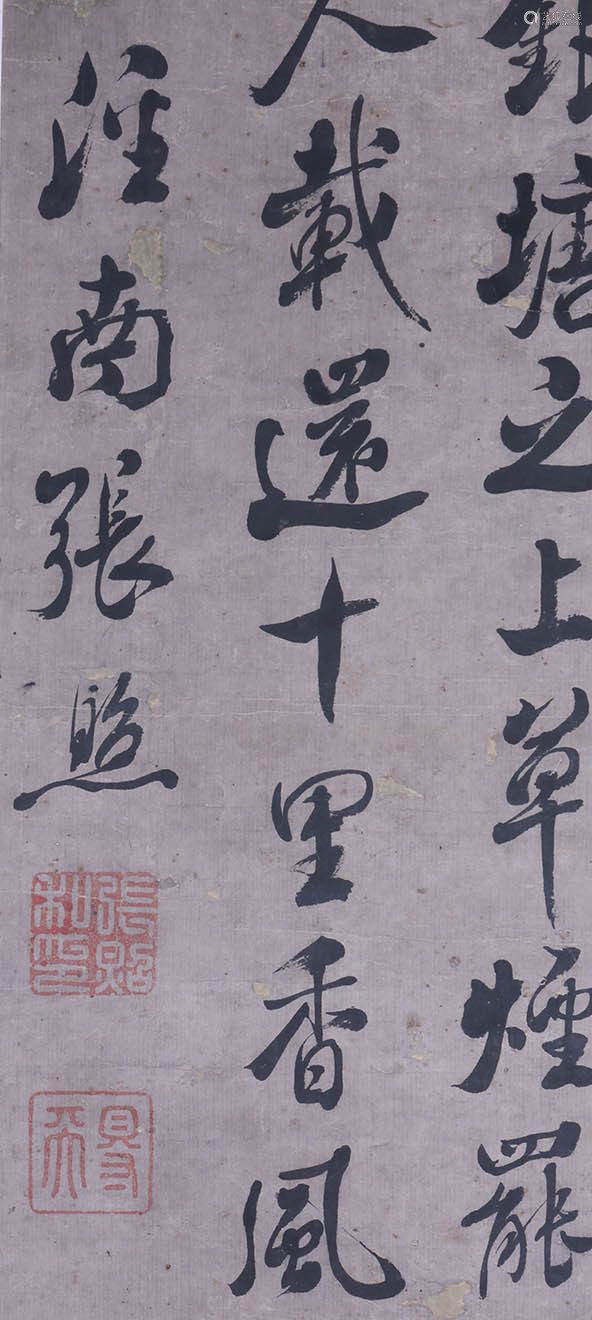 銀塘之上草煙罷
人載還十里香風
涇南張照
張照私印
得天